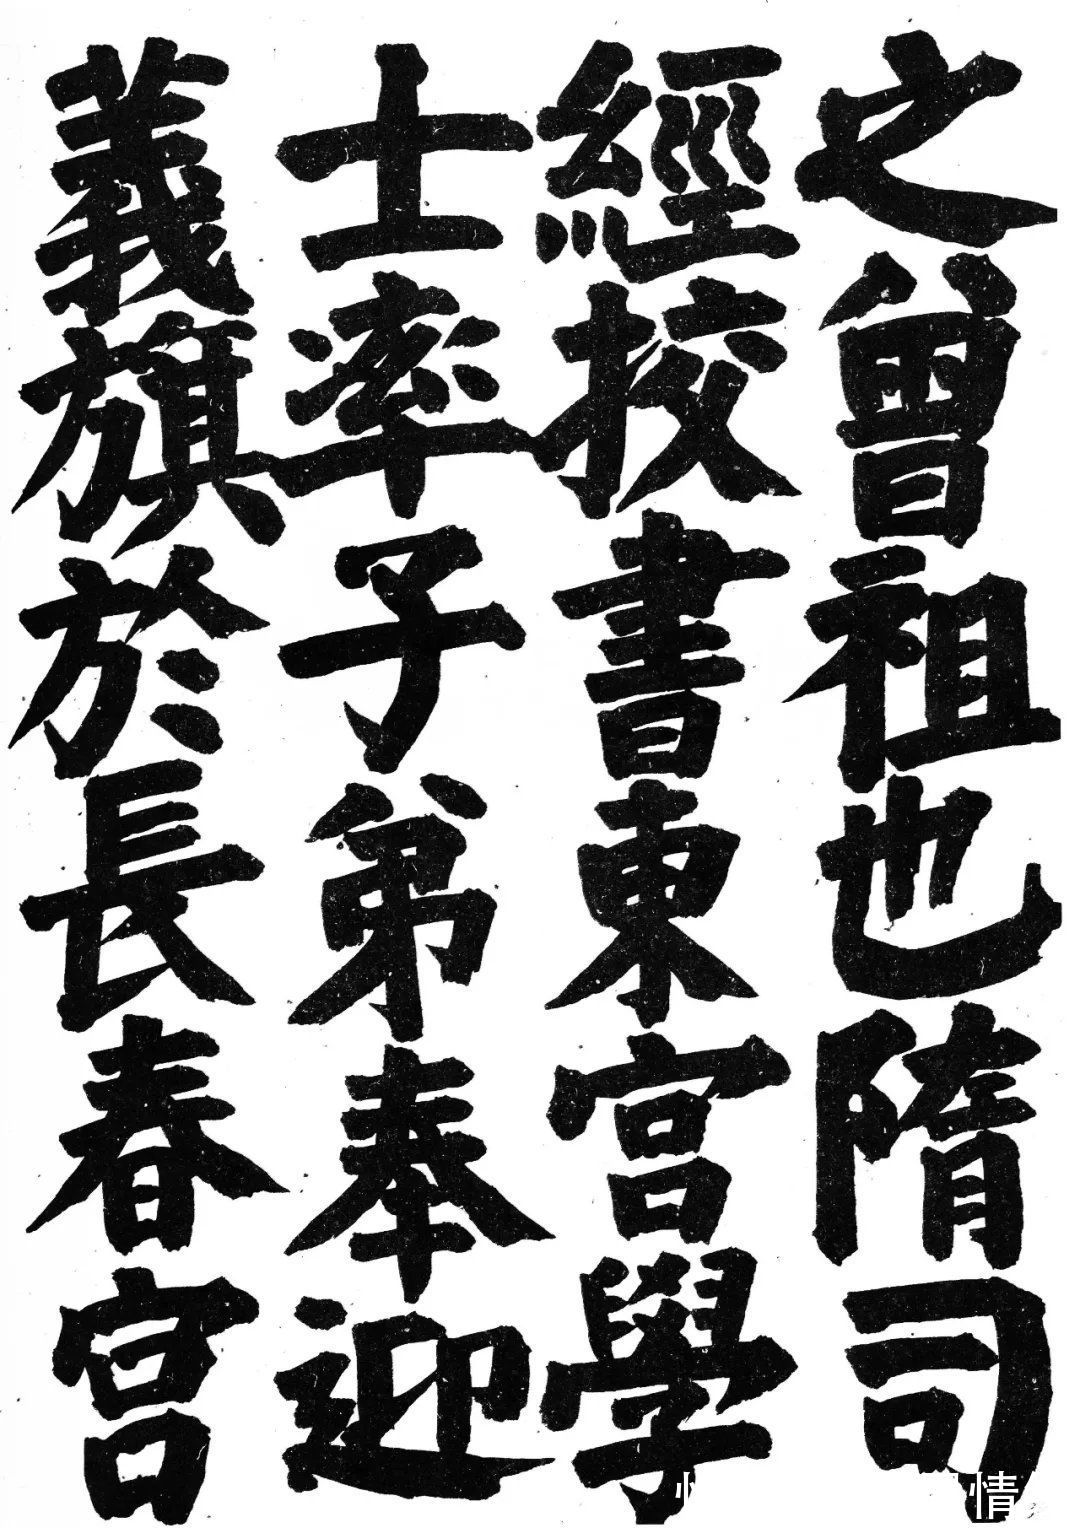 之曾祖也隋司
經挍書東宮學
士率子弟奉迎
義旗於長春宮
情